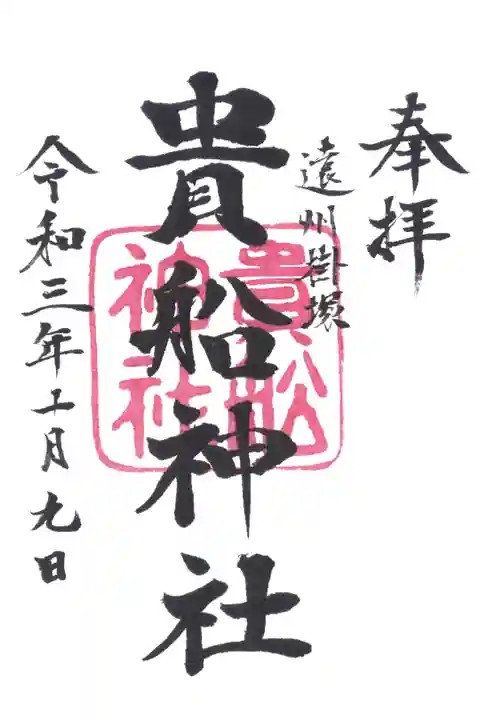 奉拝
遠州掛塚
貴船神社
貴舩
神社
令和三年十一月九日